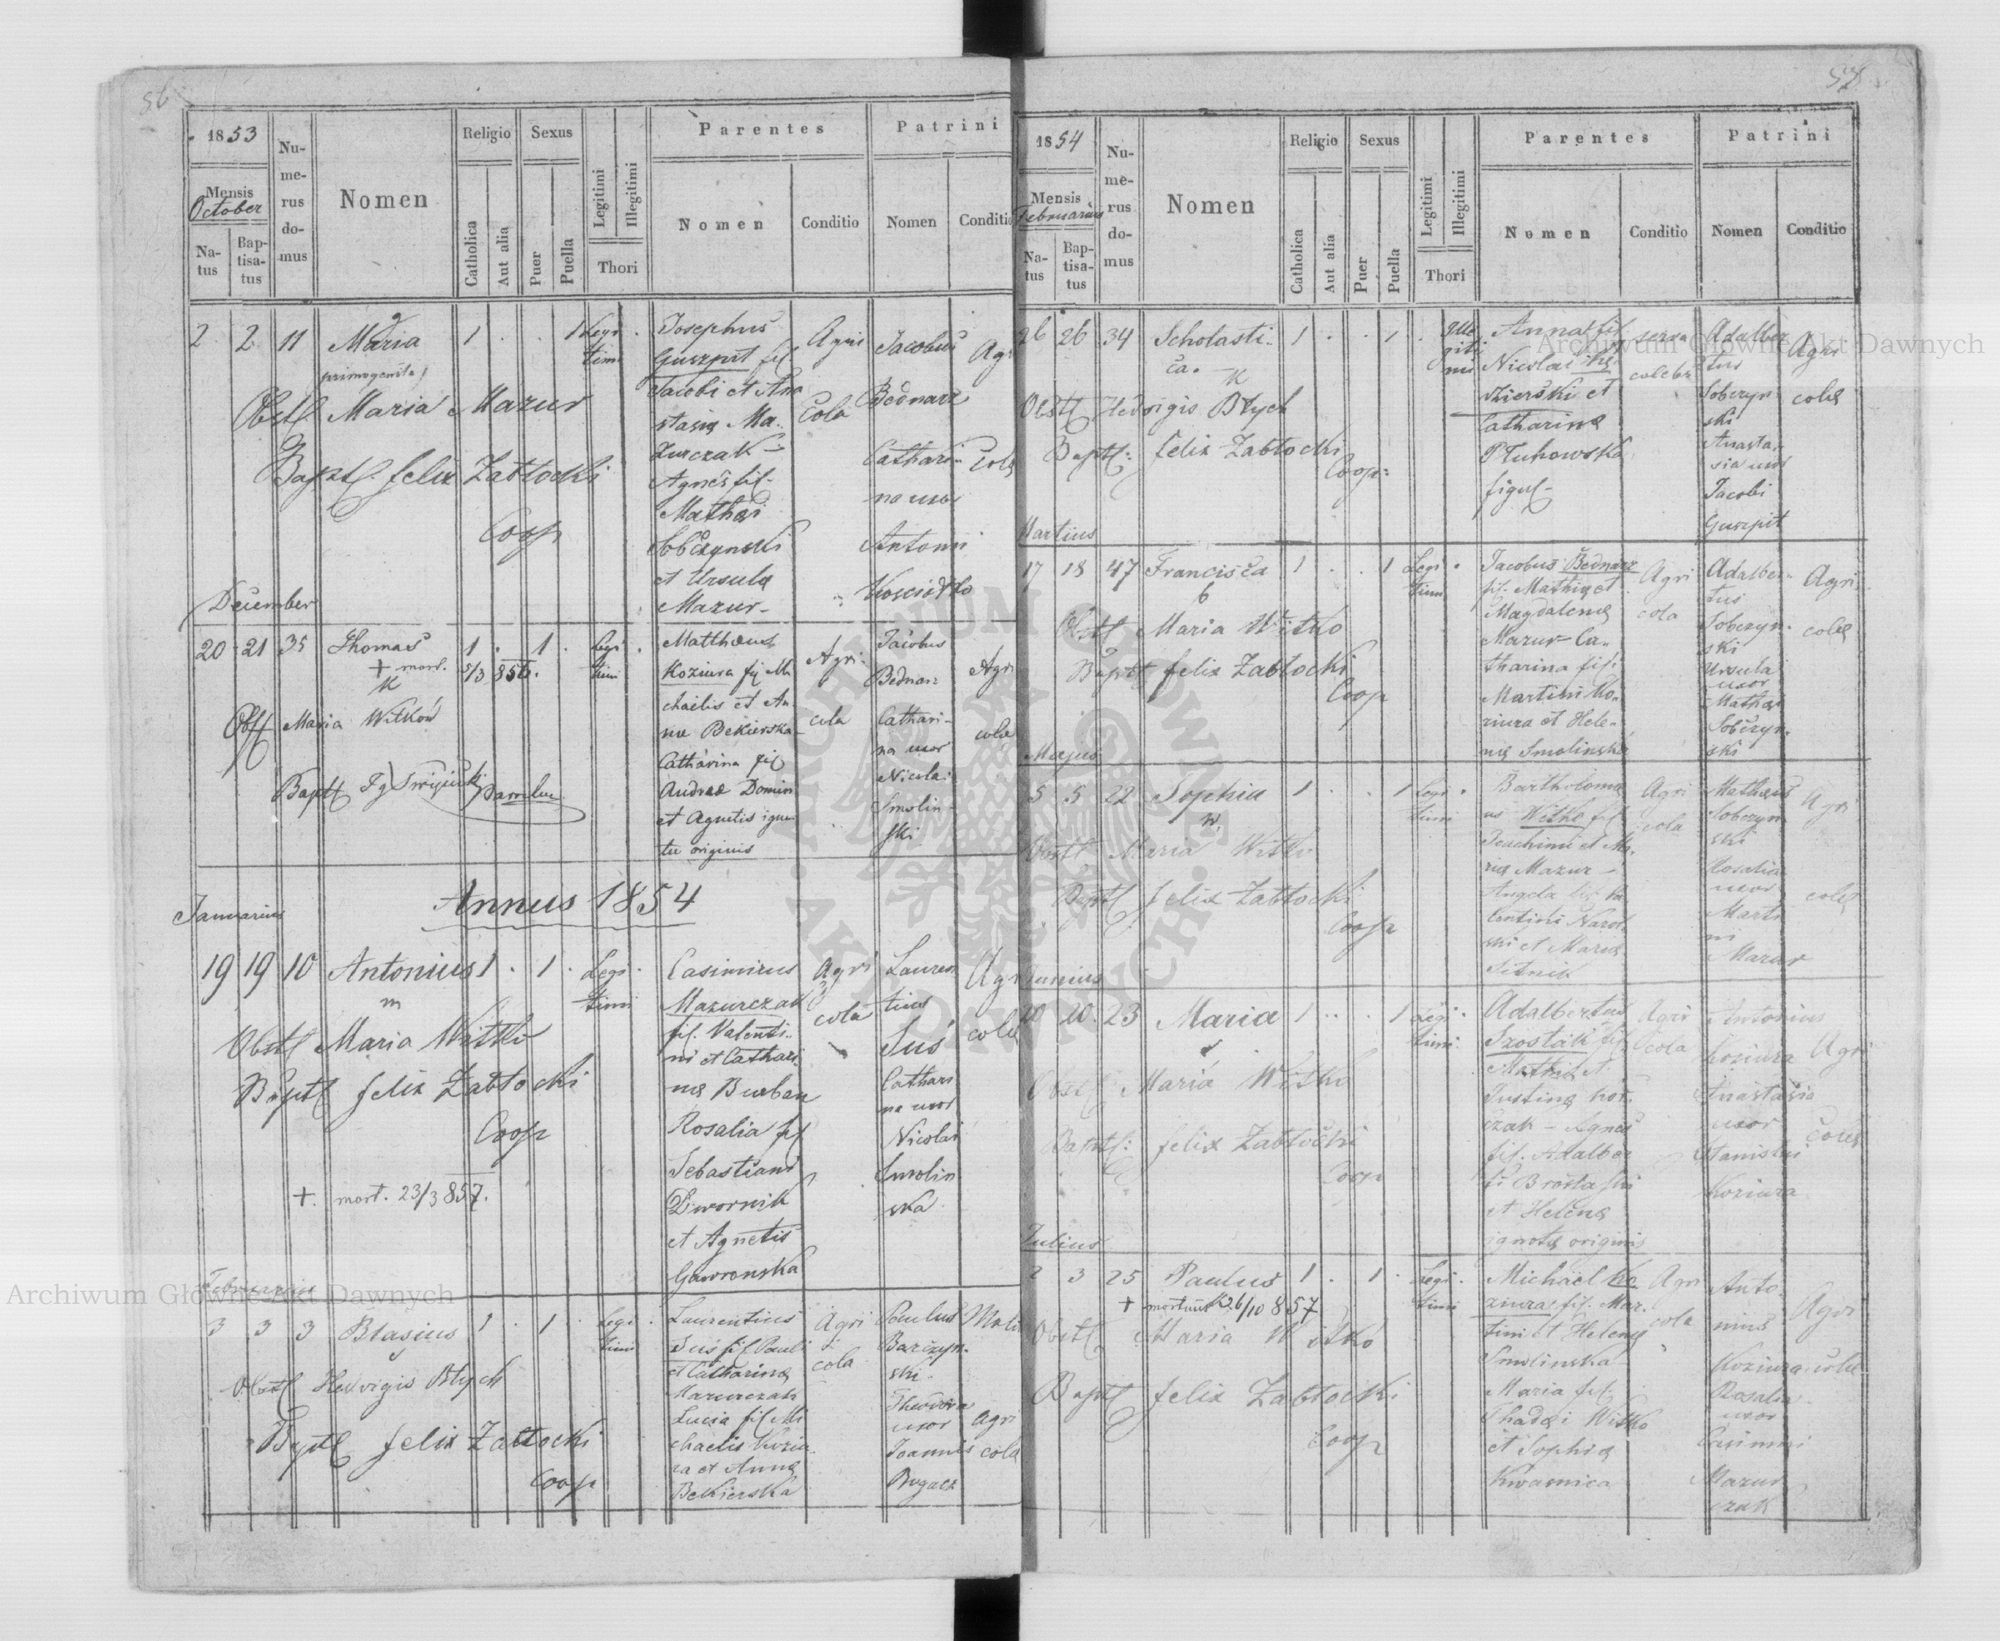 56
1853
Mensis
October
Na-
tus
Bap-
tisa-
tus
Nu-
me-
rus
do-
mus
Nomen
Religio
Catholica
Aut alia
Sexus
Puer
Puella
Legitimi
Illegitimi
Thori
Parentes
Nomen
Conditio
Patrini
Nomen
Conditio
2 2 11 Maria 1 . . 1 Legi
timi
primogenita
Obstt Maria Mazur
Baptt. felix Zabłocki
Coop
Josephus
Guszpit fil
Jacobi et Ana
stasiæ Ma-
zurczak –
Agnes fil.
Mathæi
Sobczynski
et Ursulæ
Mazur –
Agri
cola
Jacobus
Bednarz
Cathari-
na uxor
Antonii
Kosciółko
Agri
colæ
December
20 21 35 Thomas 1 . 1 . Legi
timi
+ mort. 5/3 856.
K
Obstt Maria Witków
Baptt
Matthæus
Koziura fil Mi
chaelis et An-
næ Bekierska
Catharina fil
Andreæ Domin
et Agnetis igno
tæ originis
Agri-
cola
Jacobus
Bednarz
Cathari-
na uxor
Nicolai
Smolin-
ski
Agri
colæ
Annus 1854
Januarius
19 19 10 Antonius 1 . 1 . Legi
timi
m
Obstt Maria Witko
Baptt felix Zabłocki
Coop
+. mort. 23/3 857.
Casimirus
Mazurczak
fil. Valenti-
ni et Cathari-
næ Burban
Rosalia fil
Sebastiani
Dwornik
et Agnetis
Gawronska
Agri
cola
Lauren
tius
Suś
Cathari
na uxor
Nicolai
Smolin
ska
Agri
colæ
Februarius
3 3 3 Blasius 1 . 1 . Legi
timi
Obstt Hedvigis Btych
Baptt felix Zabłocki
Coop
Laurentius
Suś fil Pauli
et Catharinæ
Mazurczak
Lucia fil Mi
chaelis Koziu
ra et Annæ
Bekierska
Agri
cola
Paulus
Barczyn-
ski.
Theodora
uxor
Joannis
Bugacz
Agri
cola
57
1854
Mensis
Februarius
Na-
tus
Bap-
tisa-
tus
Nu-
me-
rus
do-
mus
Nomen
Religio
Catholica
Aut alia
Sexus
Puer
Puella
Legitimi
Illegitimi
Thori
Parentes
Nomen
Conditio
Patrini
Nomen
Conditio
26 26 34 Scholasti- 1 . . 1 . Ille
giti
mi
ca.
K
Obstt Hedvigis Btych
Baptt: felix Zabłocki
Coop:
Anna fil
Nicolai
et
Catharinæ
Płuhowska
figul –
Adalber
tus
Sobczyn
ski
Anasta-
sia uxor
Jacobi
Guszpit
Agri
colæ
Martius
17 18 47 Francisca 1 . . 1 Legi .
timi
b
Obstt Maria Witko
Baptt felix Zabłocki
Coop
Jacobus Bednarz
fil. Mathiæ et
Magdalenæ
Mazur – Ca-
tharina fil.
Martini Ko-
ziura et Hele-
næ Smolinska
Agri
cola
Adalber-
tus
Sobczyn-
ski
Ursula
uxor
Mathæi
Sobczyn-
ski
Agri-
colæ
Majus
5 5 22 Sophia 1 . . 1 Legi .
timi
w.
Obstt Maria Witko
Baptt felix Zabłocki
Coop
Bartholomæ
us Witko fil
Joachimi et Ma-
riæ Mazur –
Angela fil Va
lentini Narol-
ski et Mariæ
Sitnik
Agri
cola
Mathæus
Sobczyn
ski
Rosalia
uxor
Marti
ni
Mazur
Agri
colæ
Junius
20 20 23 Maria 1 . . 1 Legi .
timi
Obstt Maria Witko
Baptt: felix Zabłocki
Coop
Adalbertus
Szostak fil
Mathiæ et
Justinæ
– Agnes
fil. Adalber
ti
et Helenæ
ignotæ originis
Agri
cola
Antonius
Koziura
Anastasia
uxor
Stanislai
Koziura
Agri
colæ
Julius
2 3 25 Paulus 1 . 1 . Legi .
timi
+ mortuus 26/10 857
Obstt Maria Witko
Baptt felix Zabłocki
Coop
Michael Ko
ziura fil. Mar-
tini et Helenæ
Smolinska
Maria fil.
Thadæi Witko
et Sophiæ
Kwasnica
Agri
cola
Anto-
nius
Koziura
Rosalia
uxor
Casimiri
Mazur
czak
Agri
colæ
Archiwum Główne Akt Dawnych
Archiwum Główne Akt Dawnych
ARCHIWUM GŁÓWNE AKT DAWNYCH